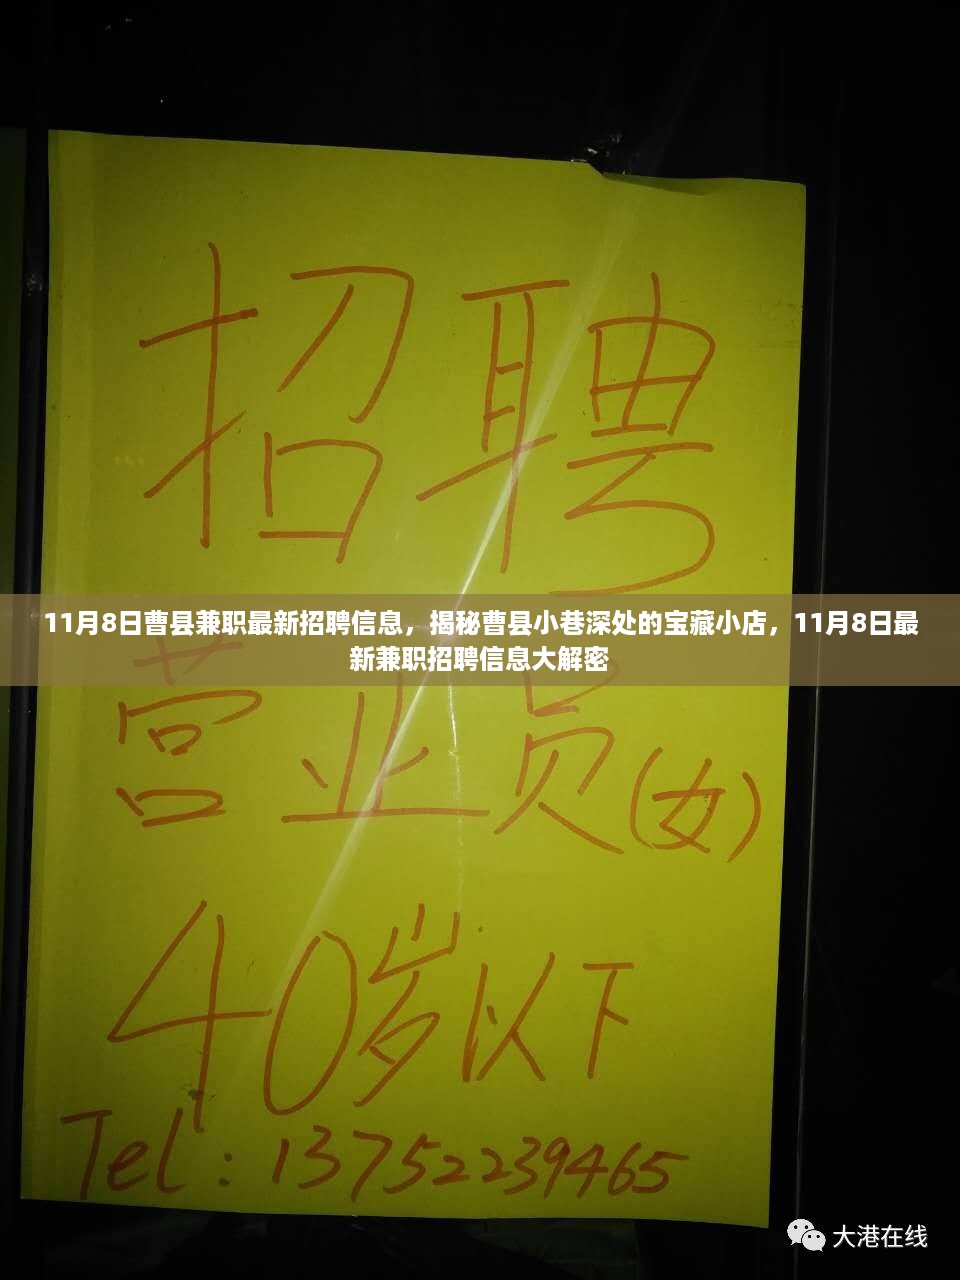 招聘
11月8日曹县兼职最新招聘信息，揭秘曹县小巷深处的宝藏小店，11月8日最
新兼职招聘信息大解密
营业员(女)
40岁以下
Tel：13752239465
大港在线